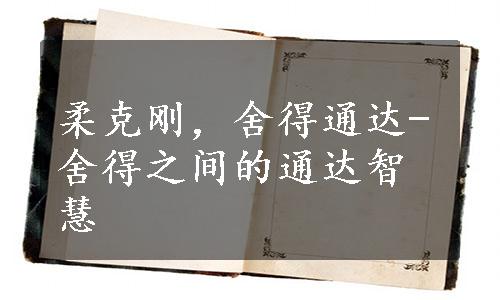 柔克刚，舍得通达-
舍得之间的通达智
慧